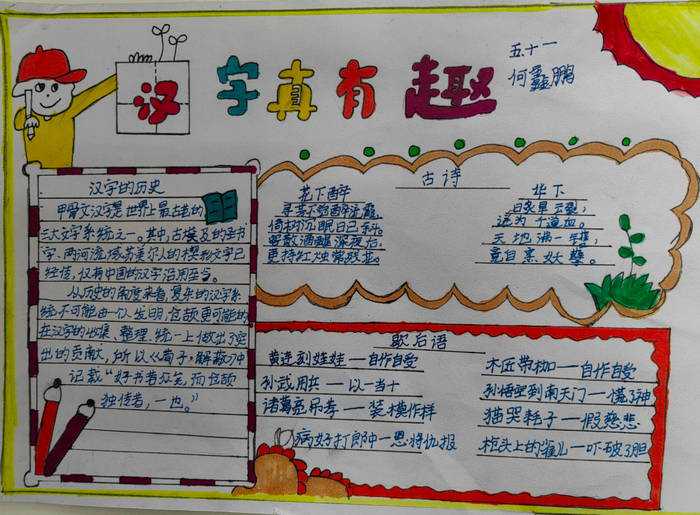 汉字真有趣
五十一
何鑫鹏
汉字的历史
甲骨文汉字是世界上最古老的
三大文字系统之一。其中,古埃及的圣书
字、两河流域苏美尔人的楔形文字已
经传,仅有中国的汉字沿用至今。
从历史的角度来看,复杂的汉字系
统不可能由一个人发明,仓颉更可能的
在汉字的收集、整理、统一上做出了突
出的贡献,所以《荀子,解蔽》中
记载“好书者众矣,而仓颉
独传者,一也。”
古诗
花下醉
寻芳不觉醉流霞,
倚树沉眠日已斜。
客散酒醒深夜后,
更持红烛赏残花。
华下
日炙旱云裂,
迸为千道血。
天地沸一镬,
竟自烹妖孽。
歇后语
黄连刻娃娃——自作自受
孙武用兵——以一当十
诸葛亮吊孝——装模作样
病好打郎中—恩将仇报
木匠带枷——自作自受
孙悟空到南天门—慌了神
猫哭耗子—假慈悲
枪头上的雀儿—吓破了胆